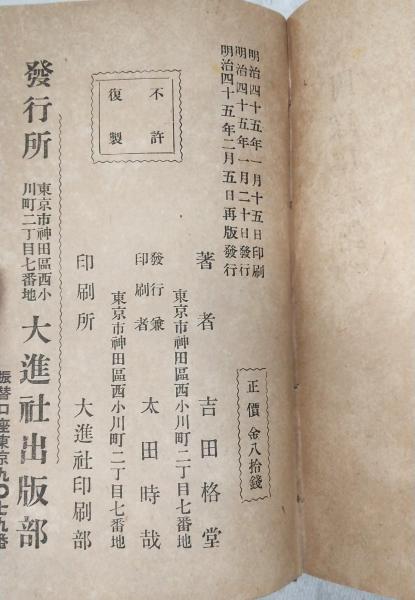 明治四十五年一月十五日印刷
明治四十五年一月二十日發行
明治四十五年二月五日再版發行
正價金八拾錢
不許
復製
著者 吉田格堂
東京市神田區西小川町二丁目七番地
發行兼
印刷者 太田時哉
東京市神田區西小川町二丁目七番地
印刷所 大進社印刷部
發行所
東京市神田區西小
川町二丁目七番地
大進社出版部
振替口座東京九〇七九番